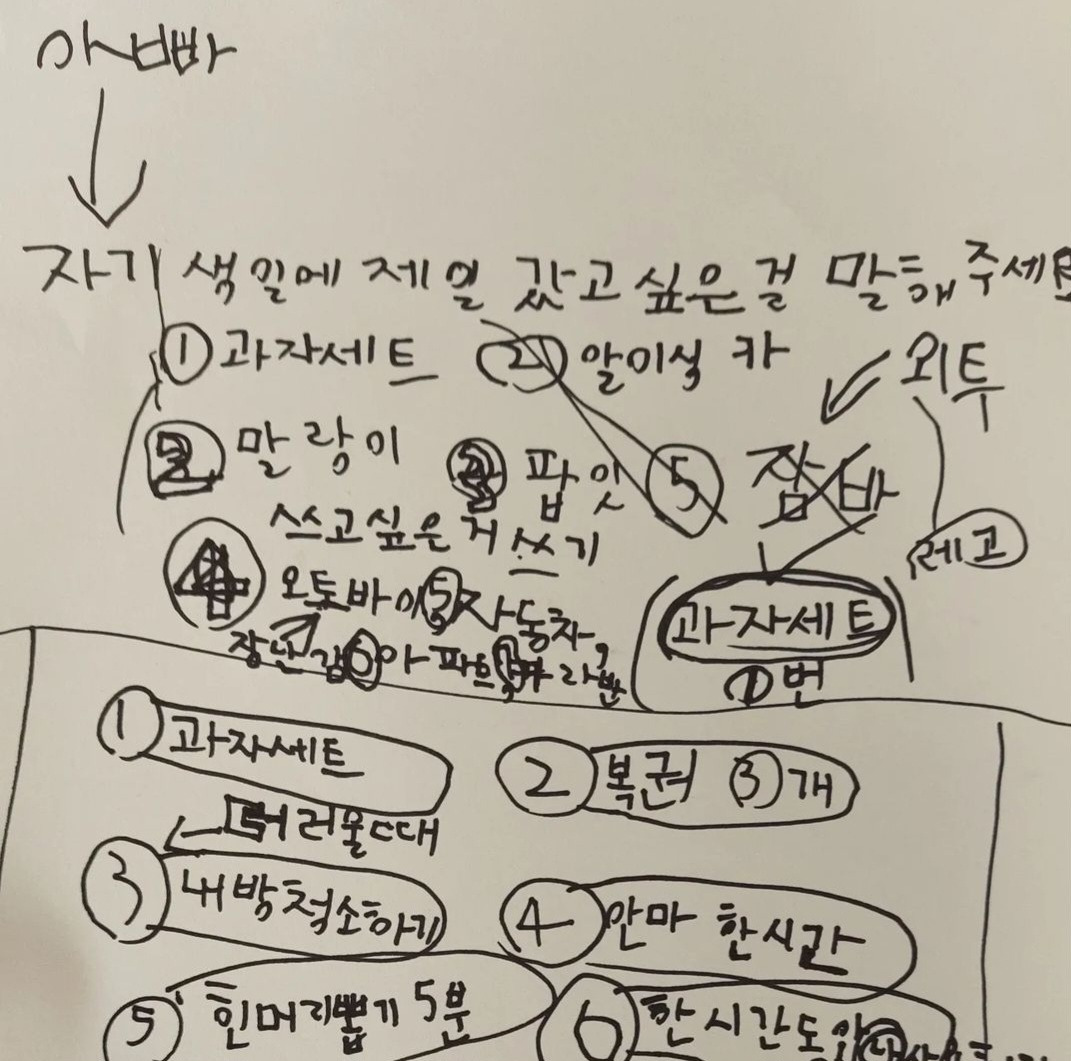 아빠
자기 생일에 제일 갔고 싶은 걸 말해 주세요
① 과자세트 ② 알이식 카
외투
2 말랑이
팝잇 ⑤ 잠바
쓰고싶은 거 쓰기
레고
④ 오토바이 ⑤ 자동차,
과자세트
장난감 ⑥ 아파트
①번
① 과자세트
② 복권 ③개
더러울때
③ 내방청소하기
④ 안마 한시간
⑤ 힌머리뽑기 5분
⑥ 한시간도안